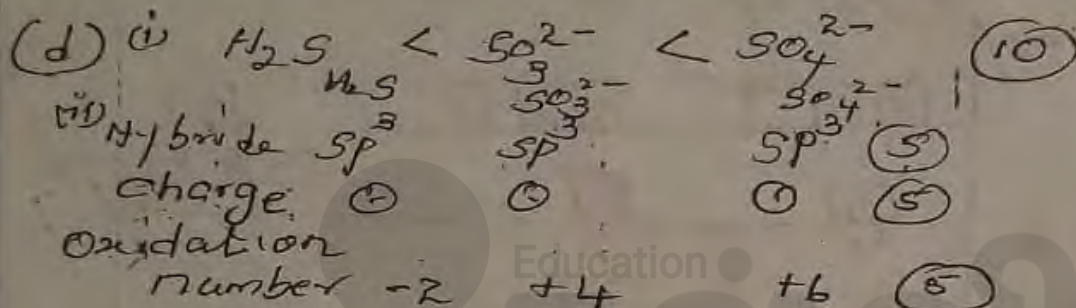 (d) (i) H₂S < SO₃²⁻ < SO₄²⁻ (10)
H₂S SO₃²⁻ SO₄²⁻
(ii) Hybride sp³ sp³ sp³ (5)
Charge (5)
Oxidation
number -2 +4 +6 (5)
Education